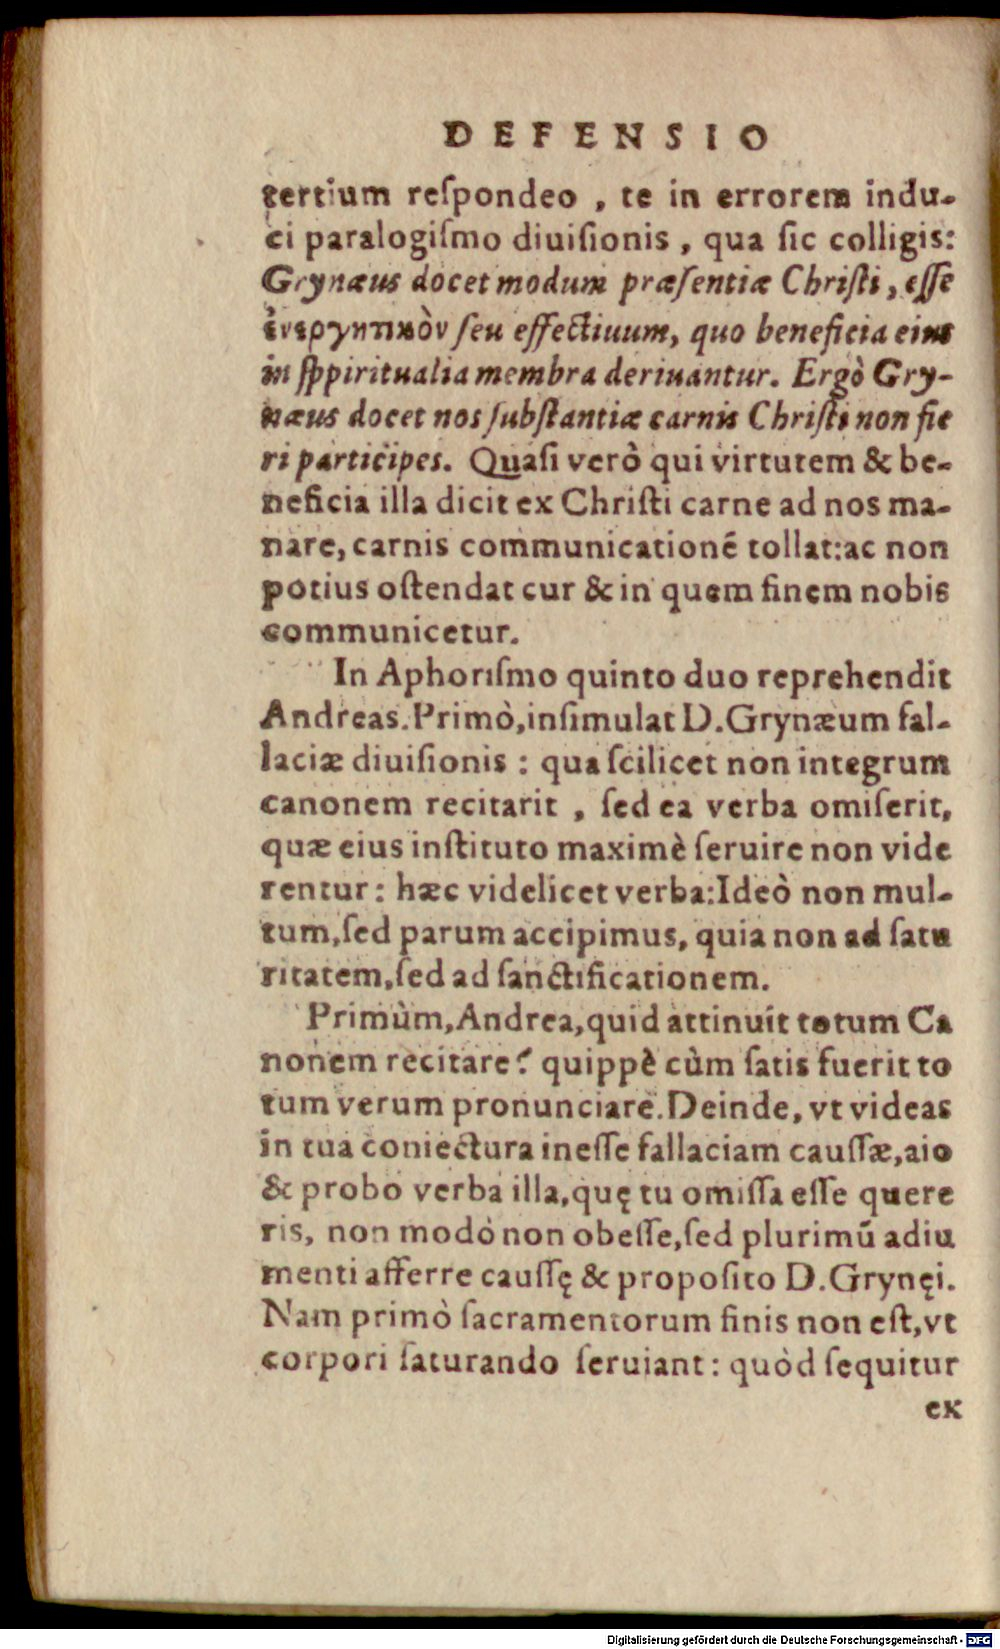 DEFENSIO
tertium reſpondeo , te in errorem indu-
ci paralogiſmo diuiſionis , qua ſic colligis:
Grynæus docet modum præſentiæ Chriſti, eſſe
ἐνεργητικὸν ſeu effectiuum, quo beneficia eius
in ſppiritualia membra deriuantur. Ergò Gry-
næus docet nos ſubſtantiæ carnis Chriſti non fie
ri participes. Quaſi verò qui virtutem & be-
neficia illa dicit ex Chriſti carne ad nos ma-
nare, carnis communicationẽ tollat: ac non
potius oſtendat cur & in quem finem nobis
communicetur.
In Aphoriſmo quinto duo reprehendit
Andreas. Primò, inſimulat D. Grynæum fal-
laciæ diuiſionis : qua ſcilicet non integrum
canonem recitarit , ſed ea verba omiſerit,
quæ eius inſtituto maximè ſeruire non vide
rentur : hæc videlicet verba: Ideò non mul-
tum, ſed parum accipimus, quia non ad ſatu
ritatem, ſed ad ſanctificationem.
Primùm, Andrea, quid attinuit totum Ca
nonem recitare? quippè cùm ſatis fuerit to
tum verum pronunciare. Deinde, vt videas
in tua coniectura ineſſe fallaciam cauſſæ, aio
& probo verba illa, quę tu omiſſa eſſe quere
ris, non modò non obeſſe, ſed plurimũ adiu
menti afferre cauſſę & propoſito D. Grynęi.
Nam primò ſacramentorum finis non eſt, vt
corpori ſaturando ſeruiant : quòd ſequitur
ex
Digitalisierung gefördert durch die Deutsche Forschungsgemeinschaft - DFG